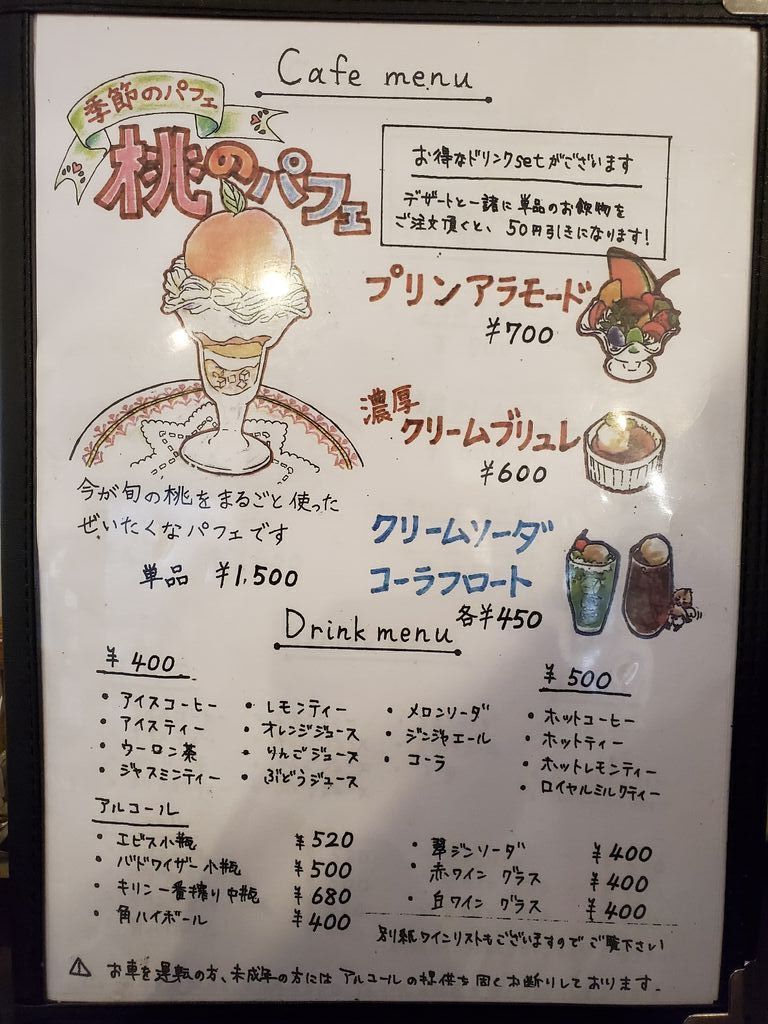 Cafe menu
季節のパフェ
桃のパフェ
お得なドリンクsetがございます
デザートと一諸に単品のお飲物を
ご注文頂くと、50円引きになります!
プリンアラモード
¥700
濃厚
クリームブリュレ
¥600
今が旬の桃をまるごと使った
ぜいたくなパフェです
単品 ¥1,500
クリームソーダ
コーラフロート
各¥450
Drink menu
¥400
・アイスコーヒー
・アイスティー
・ウーロン茶
・ジャスミンティー
・レモンティー
・オレンジジュース
・りんごジュース
・ぶどうジュース
・メロンソーダ
・ジンジャエール
・コーラ
¥500
・ホットコーヒー
・ホットティー
・ホットレモンティー
・ロイヤルミルクティー
アルコール
・エビス小瓶 ¥520
・バドワイザー小瓶 ¥500
・キリン一番搾り中瓶 ¥680
・角ハイボール ¥400
・翠ジンソーダ ¥400
・赤ワイン グラス ¥400
・白ワイン グラス ¥400
別紙ワインリストもございますのでご覧下さい
⚠ お車を運転の方、未成年の方にはアルコールの提供を固くお断りしております。